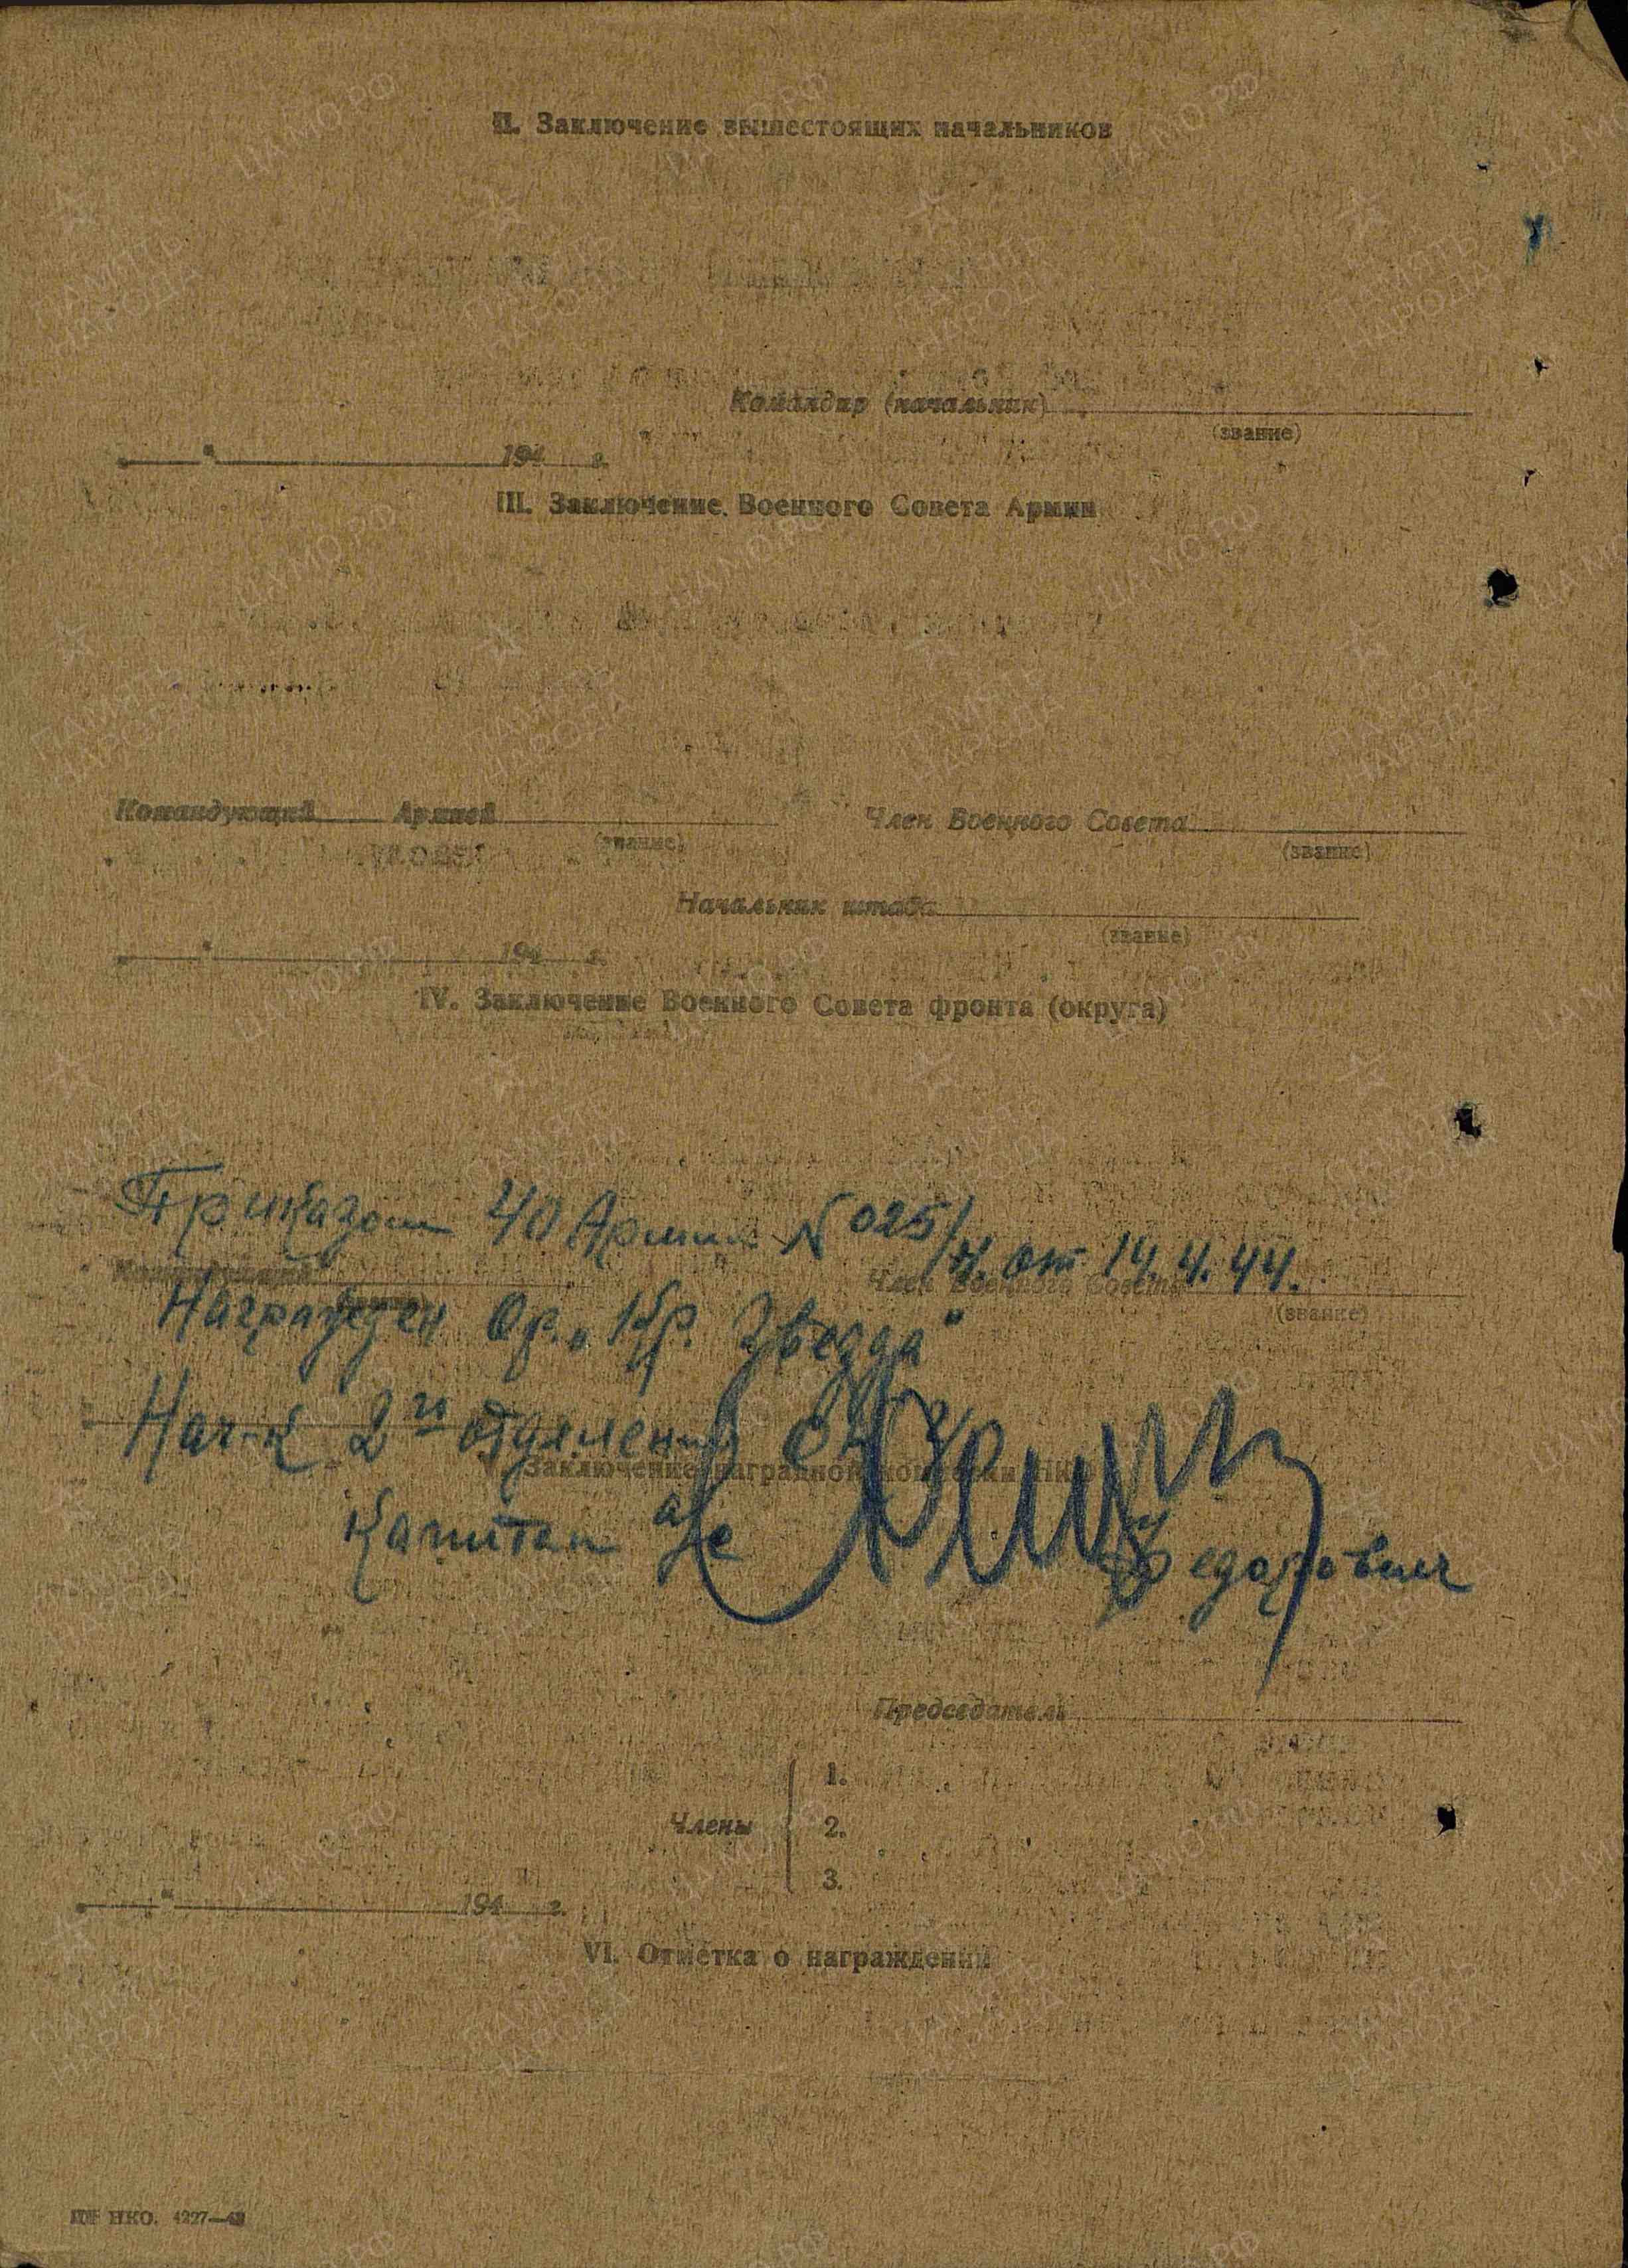 II. Заключение вышестоящих начальников
Командир (начальник)
(звание)
" " 194 г.
III. Заключение Военного Совета Армии
Командующий Армией
(звание)
Член Военного Совета
(звание)
Начальник штаба
(звание)
" " 194 г.
IV. Заключение Военного Совета фронта (округа)
Приказом 40 Армии № 025/н. от 14.4.44.
Командующий
Член Военного Совета
(звание)
Награжден Ор. „Кр. Звезда"
Нач-к 2го отделения
V. Заключение наградной комиссии НКО
Капитан а/с Федорович
Председатель
Члены
1.
2.
3.
" " 194 г.
VI. Отметка о награждении
НКО. 4227—
ПАМЯТЬ НАРОДА
ЦА МО.РФ